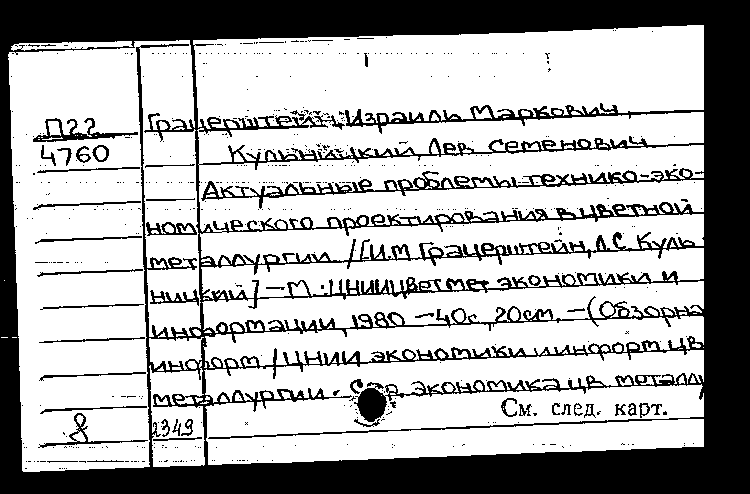 П22
4760
Грацерштейн, Израиль Маркович,
Кульницкий, Лев Семенович
Актуальные проблемы технико-эко-
номического проектирования в цветной
металлургии / [И.М. Грацерштейн, Л.С. Куль
ницкий] — М.: ЦНИИЦветмет экономики и
информации, 1980 — 40с., 20см. — (Обзорна
информ. / ЦНИИ экономики и информ. цв
металлургии. Сер. экономика цв. металлу
См. след. карт.
8
2349